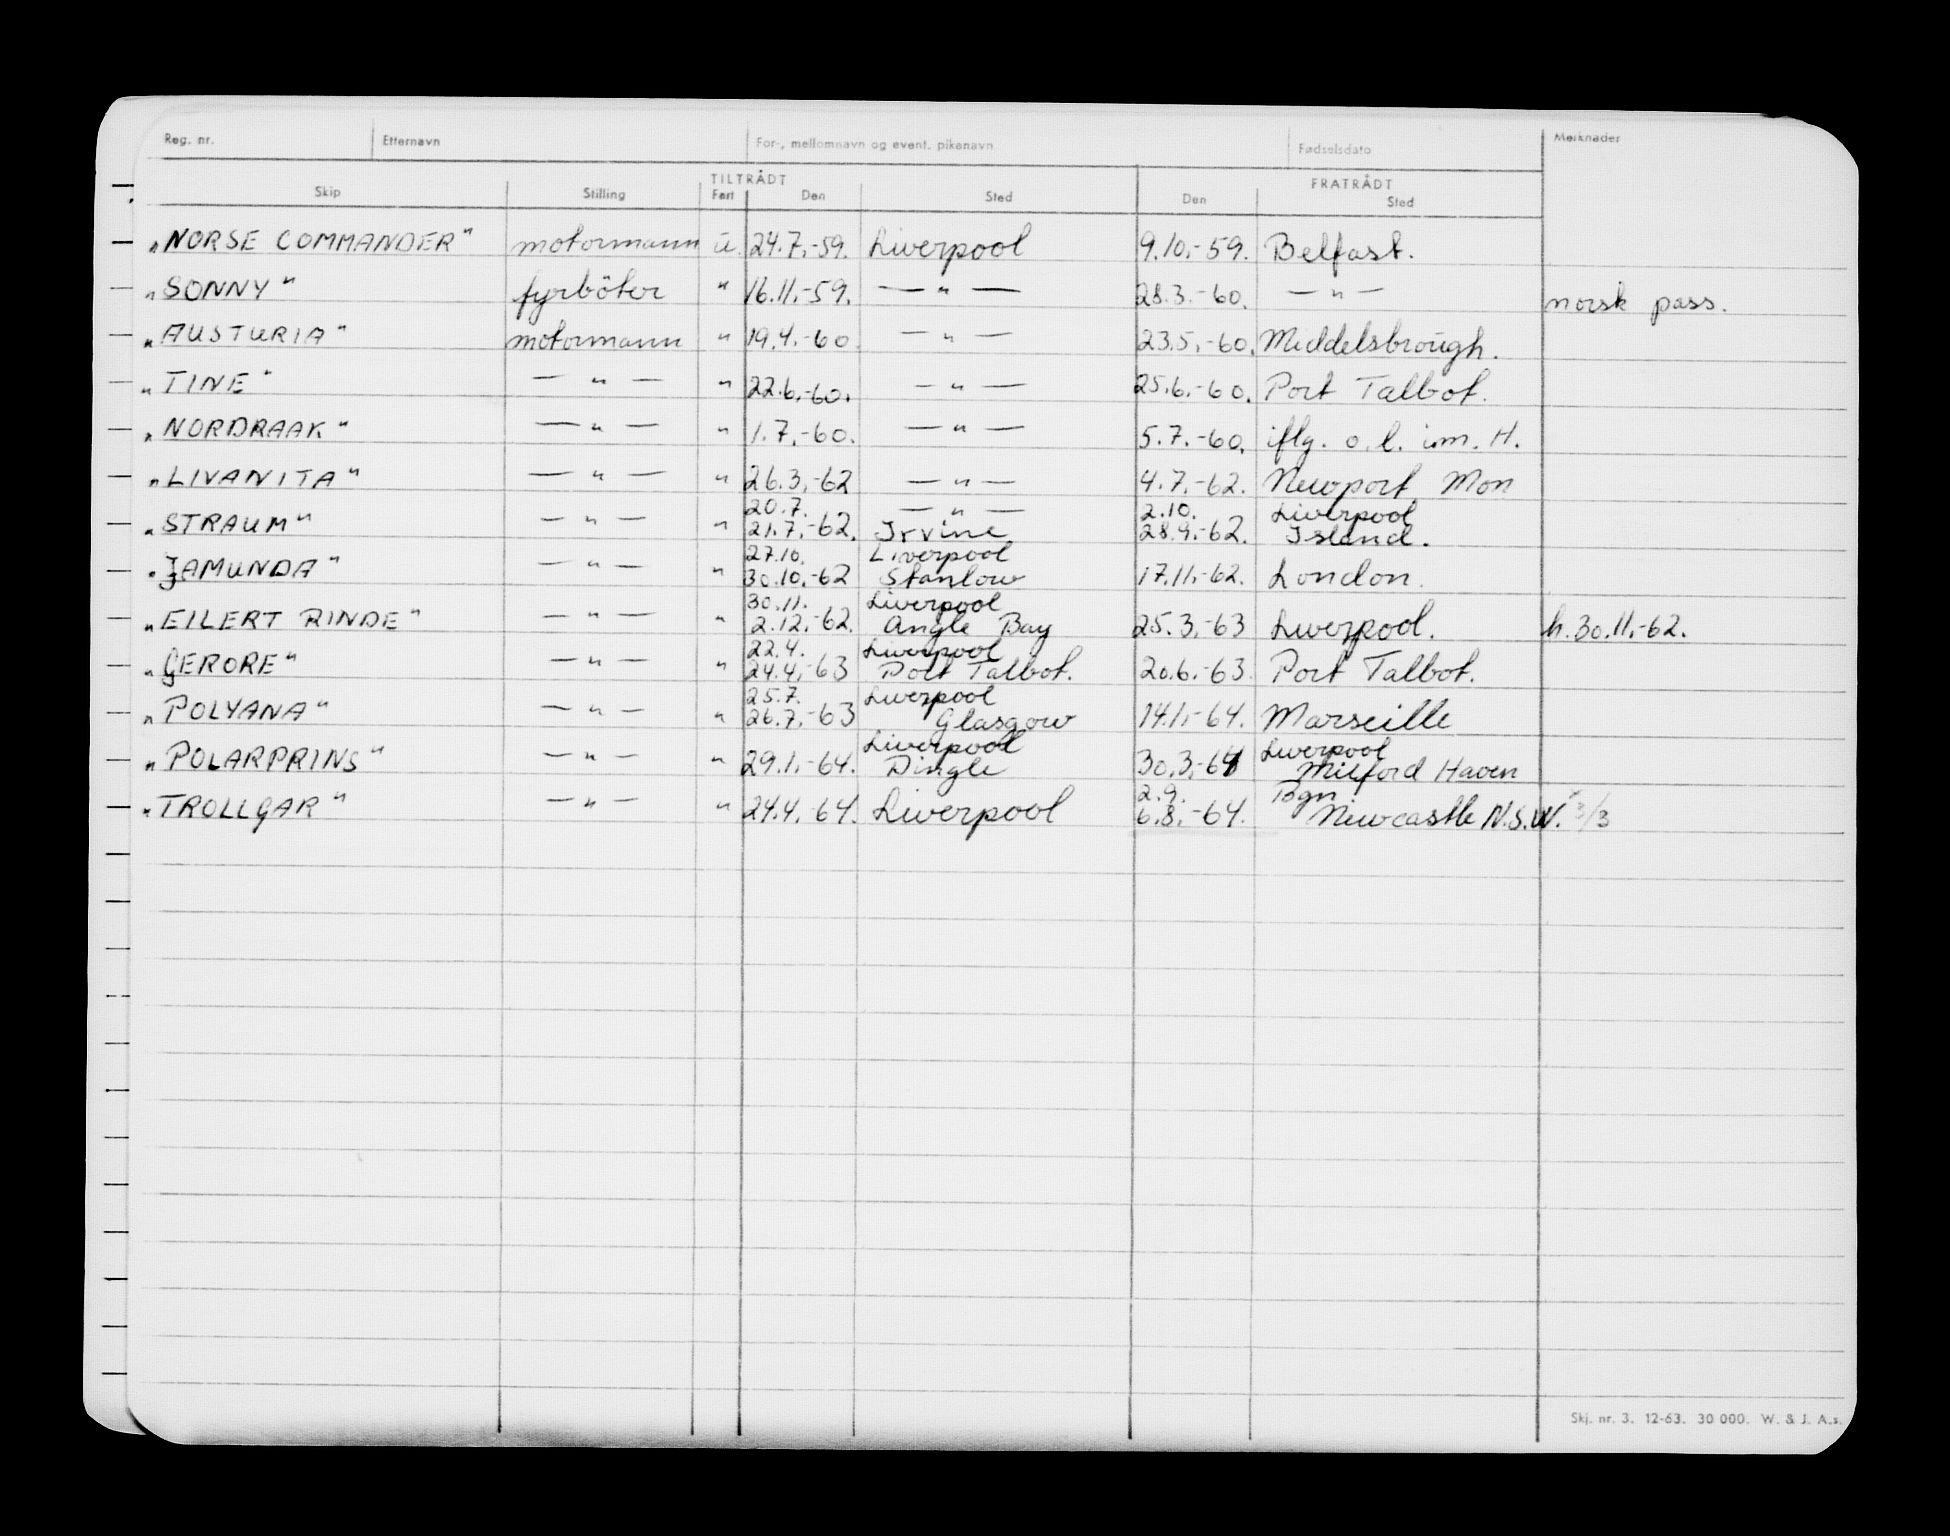 Reg. nr. Etternavn For-, mellomnavn og event. pikenavn Fødselsdato Merknader
TILTRÅDT FRATRÅDT
Skip Stilling Fart Den Sted Den Sted
"NORSE COMMANDER" motormann u. 24.7.-59. Liverpool 9.10.-59. Belfast.
"SONNY" fyrböter " 16.11.-59. — " — 28.3.-60. — " — norsk pass.
"AUSTURIA" motormann " 19.4.-60. — " — 23.5.-60. Middelsbrough.
"TINE" — " — " 22.6.-60. — " — 25.6.-60. Port Talbot.
"NORDRAAK" — " — " 1.7.-60. — " — 5.7.-60. iflg. o.l. im. H.
"LIVANITA" — " — " 26.3.-62 — " — 4.7.-62. Newport Mon
20.7. — " — 2.10. Liverpool
"STRAUM" — " — " 21.7.-62. Irvine 28.9.-62. Island.
27.10. Liverpool
"JAMUNDA" — " — " 30.10.-62 Stanlow 17.11.-62. London.
30.11. Liverpool
"EILERT RINDE" — " — " 2.12.-62. Angle Bay 25.3.-63 Liverpool. h. 30.11.-62.
22.4. Liverpool
"GERORE" — " — " 24.4.-63 Port Talbot. 20.6.-63 Port Talbot.
25.7. Liverpool
"POLYANA" — " — " 26.7.-63 Glasgow 14.1.-64. Marseille
Liverpool Liverpool
"POLARPRINS" — " — " 29.1.-64. Dingle 30.3.-64 Milford Haven
2.9. Bgn
"TROLLGAR" — " — " 24.4.-64. Liverpool 6.8.-64. Newcastle N.S.W. 3/3
Skj. nr. 3. 12-63. 30 000. W. & J. A.s.